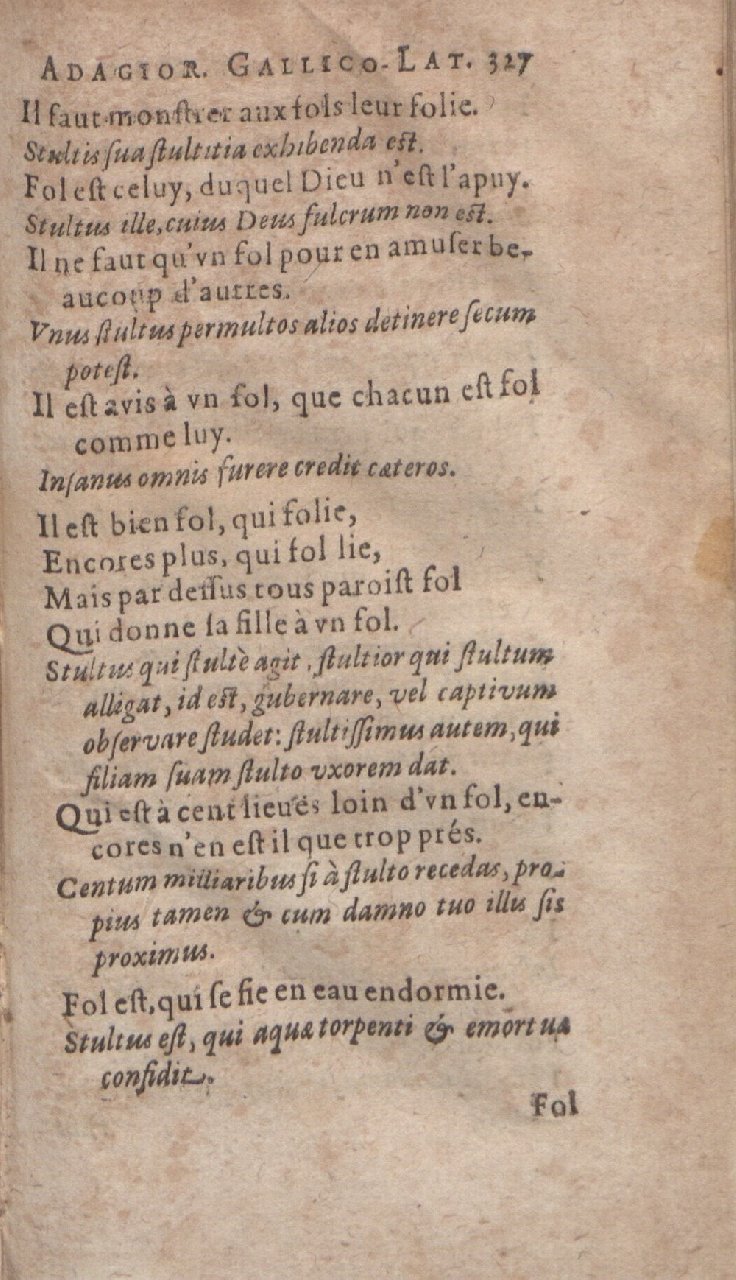 ADAGIOR. GALLICO-LAT. 327
Il faut monſtrer aux fols leur folie.
Stultis ſua ſtultitia exhibenda eſt.
Fol eſt celuy, duquel Dieu n'eſt l'apuy.
Stultus ille, cuius Deus fulcrum non eſt.
Il ne faut qu'vn fol pour en amuſer be-
aucoup d'autres.
Vnus ſtultus permultos alios detinere ſecum
poteſt.
Il eſt avis à vn fol, que chacun eſt fol
comme luy.
Inſanus omnis furere credit cæteros.
Il eſt bien fol, qui folie,
Encores plus, qui fol lie,
Mais par deſſus tous paroiſt fol
Qui donne ſa fille à vn fol.
Stultus qui ſtultè agit, ſtultior qui ſtultum
alligat, id eſt, gubernare, vel captivum
obſervare ſtudet: ſtultiſſimus autem, qui
filiam ſuam ſtulto vxorem dat.
Qui eſt à cent lieuës loin d'vn fol, en-
cores n'en eſt il que trop prés.
Centum milliaribus ſi à ſtulto recedas, pro-
pius tamen & cum damno tuo illu ſis
proximus.
Fol eſt, qui ſe fie en eau endormie.
Stultus eſt, qui aquæ torpenti & emortuæ
confidit.
Fol